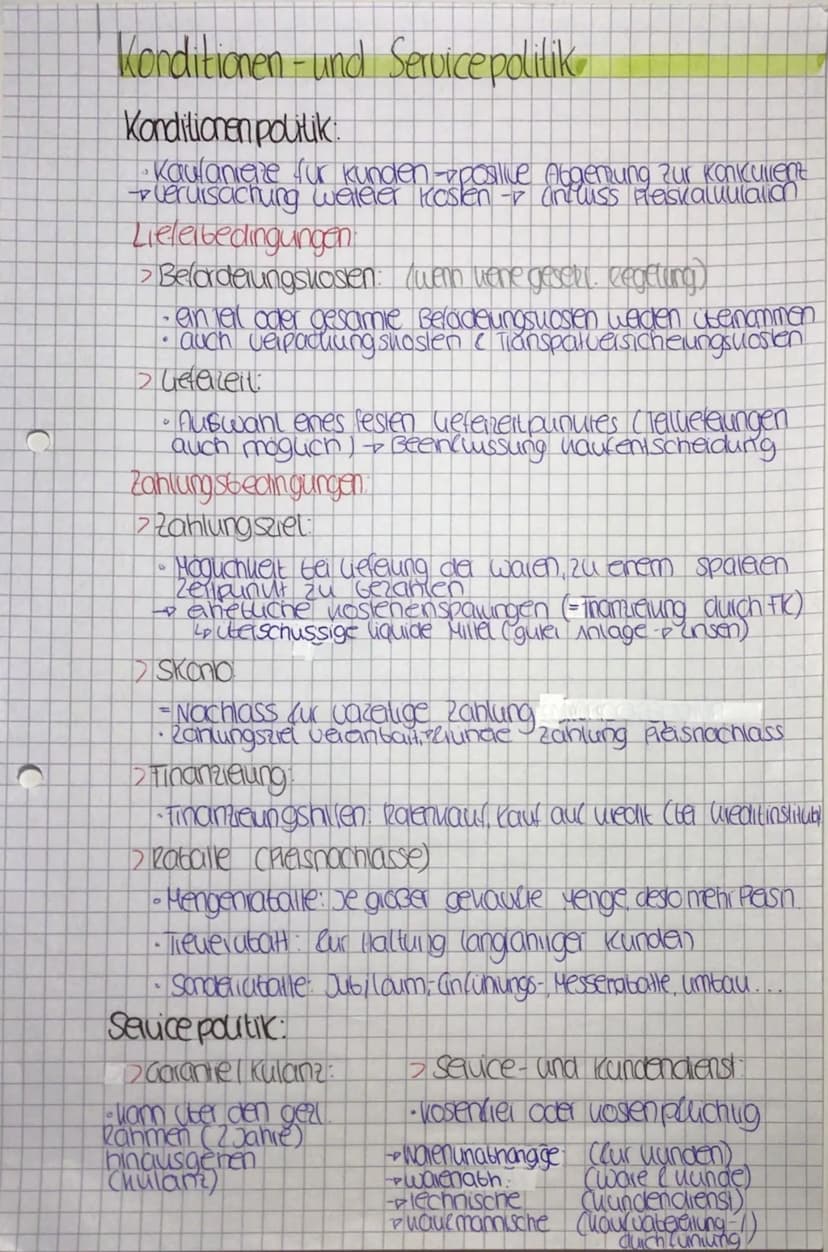 Konditionen- und Servicepolitik
Konditionenpolitik:
· Kaufanreize für Kunden → positive Abgrenzung zur Konkurrent
→ Verursachung weiterer Kosten → Einfluss Preiskalkulation
Lieferbedingungen:
> Beförderungskosten: (wenn keine gesetzl. Regelung)
· ein Teil oder gesamte Beförderungskosten werden übernommen
· auch Verpackungskosten & Transportversicherungskosten
> Lieferzeit:
· Auswahl eines festen Lieferzeitpunktes (Teillieferungen
auch möglich) → Beeinflussung Kaufentscheidung
Zahlungsbedingungen:
> Zahlungsziel:
· Möglichkeit bei Lieferung der Waren, zu einem späteren
Zeitpunkt zu bezahlen
→ erhebliche Kosteneinsparungen (= Finanzierung durch FK)
↳ überschüssige liquide Mittel (guter Anlage → Zinsen)
> Skonto
= Nachlass für vorzeitige Zahlung
· Zahlungsziel vereinbart, Kunde Zahlung Preisnachlass
> Finanzierung:
· Finanzierungshilfen: Ratenkauf, Kauf auf Kredit (bei Kreditinstitut)
> Rabatte (Preisnachlässe)
· Mengenrabatte: Je größer gekaufte Menge, desto mehr Preisn.
· Treuerabatt: Zur Haltung langjähriger Kunden
· Sonderrabatte: Jubiläum-, Einführungs-, Messerabatte, Umbau...
Servicepolitik:
> Garantie/Kulanz:
· kann über den gezl.
Rahmen (2 Jahre)
hinausgehen
(Kulanz)
> Service- und Kundendienst:
· kostenfrei oder kostenpflichtig
→ Warenunabhängige (für Kunden)
→ warenabh. (Ware & Kunde)
→ technische (Kundendienst)
→ kaufmännische (Kaufvorbereitung-/)
durchführung